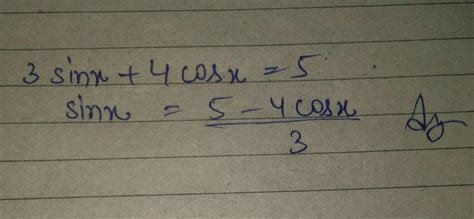 3 sinx + 4 cosx = 5
sinx = 5 - 4 cosx / 3